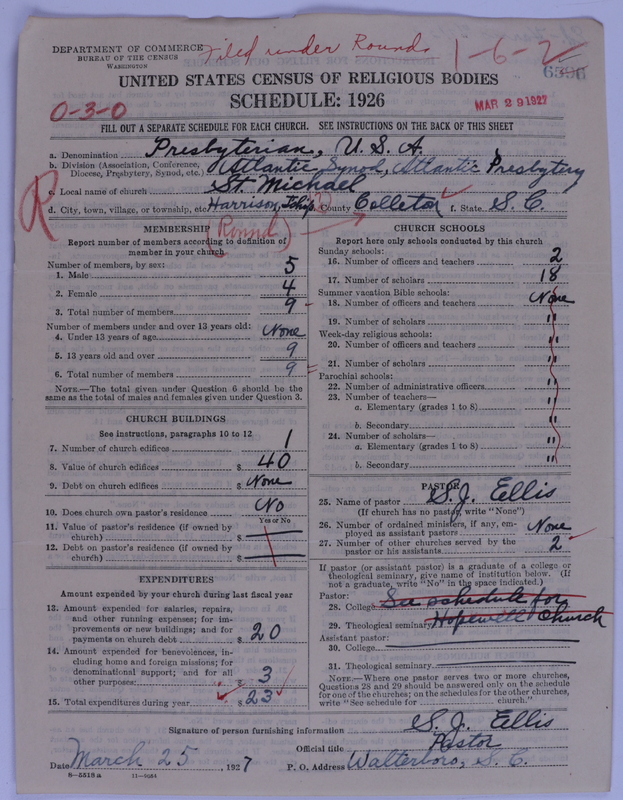 DEPARTMENT OF COMMERCE
BUREAU OF THE CENSUS
WASHINGTON
Filed under Round
1-6-2
6396
UNITED STATES CENSUS OF RELIGIOUS BODIES
SCHEDULE: 1926
0-3-0
MAR 29 1927
FILL OUT A SEPARATE SCHEDULE FOR EACH CHURCH. SEE INSTRUCTIONS ON THE BACK OF THIS SHEET
a. Denomination Presbyterian, U. S. A.
b. Division (Association, Conference, Diocese, Presbytery, Synod, etc.) Atlantic Synod, Atlantic Presbytery
c. Local name of church St. Michael
d. City, town, village, or township, etc. Harrison, Tship County Colleton f. State S. C.
R
(Round)
MEMBERSHIP
Report number of members according to definition of
member in your church
Number of members, by sex:
1. Male 5
2. Female 4
3. Total number of members 9
Number of members under and over 13 years old:
4. Under 13 years of age None
5. 13 years old and over 9
6. Total number of members 9
NOTE.—The total given under Question 6 should be the
same as the total of males and females given under Question 3.
CHURCH BUILDINGS
See instructions, paragraphs 10 to 12
7. Number of church edifices 1
8. Value of church edifices $ 40
9. Debt on church edifices $ None
10. Does church own pastor's residence No
Yes or No
11. Value of pastor's residence (if owned by
church) $
12. Debt on pastor's residence (if owned by
church) $
EXPENDITURES
Amount expended by your church during last fiscal year
13. Amount expended for salaries, repairs,
and other running expenses; for im-
provements or new buildings; and for
payments on church debt $ 20
14. Amount expended for benevolences, in-
cluding home and foreign missions; for
denominational support; and for all
other purposes: $ 3
15. Total expenditures during year $ 23
CHURCH SCHOOLS
Report here only schools conducted by this church
Sunday schools:
16. Number of officers and teachers 2
17. Number of scholars 18
Summer vacation Bible schools:
18. Number of officers and teachers None
19. Number of scholars "
Week-day religious schools:
20. Number of officers and teachers "
21. Number of scholars "
Parochial schools:
22. Number of administrative officers "
23. Number of teachers—
a. Elementary (grades 1 to 8) "
b. Secondary "
24. Number of scholars—
a. Elementary (grades 1 to 8) "
b. Secondary "
PASTOR
25. Name of pastor S. J. Ellis
(If church has no pastor, write "None")
26. Number of ordained ministers, if any, em-
ployed as assistant pastors None
27. Number of other churches served by the
pastor or his assistants 2
If pastor (or assistant pastor) is a graduate of a college or
theological seminary, give name of institution below. (If
not a graduate, write "No" in the space indicated.)
Pastor:
28. College See schedule for
29. Theological seminary Hopewell Church
Assistant pastor:
30. College
31. Theological seminary
NOTE.—Where one pastor serves two or more churches,
Questions 28 and 29 should be answered only on the schedule
for one of the churches; on the schedules for the other churches,
write "See schedule for church."
Signature of person furnishing information S. J. Ellis
Official title Pastor
Date March 25, 1927 P. O. Address Walterboro, S. C.
8—5518 a 11—9084